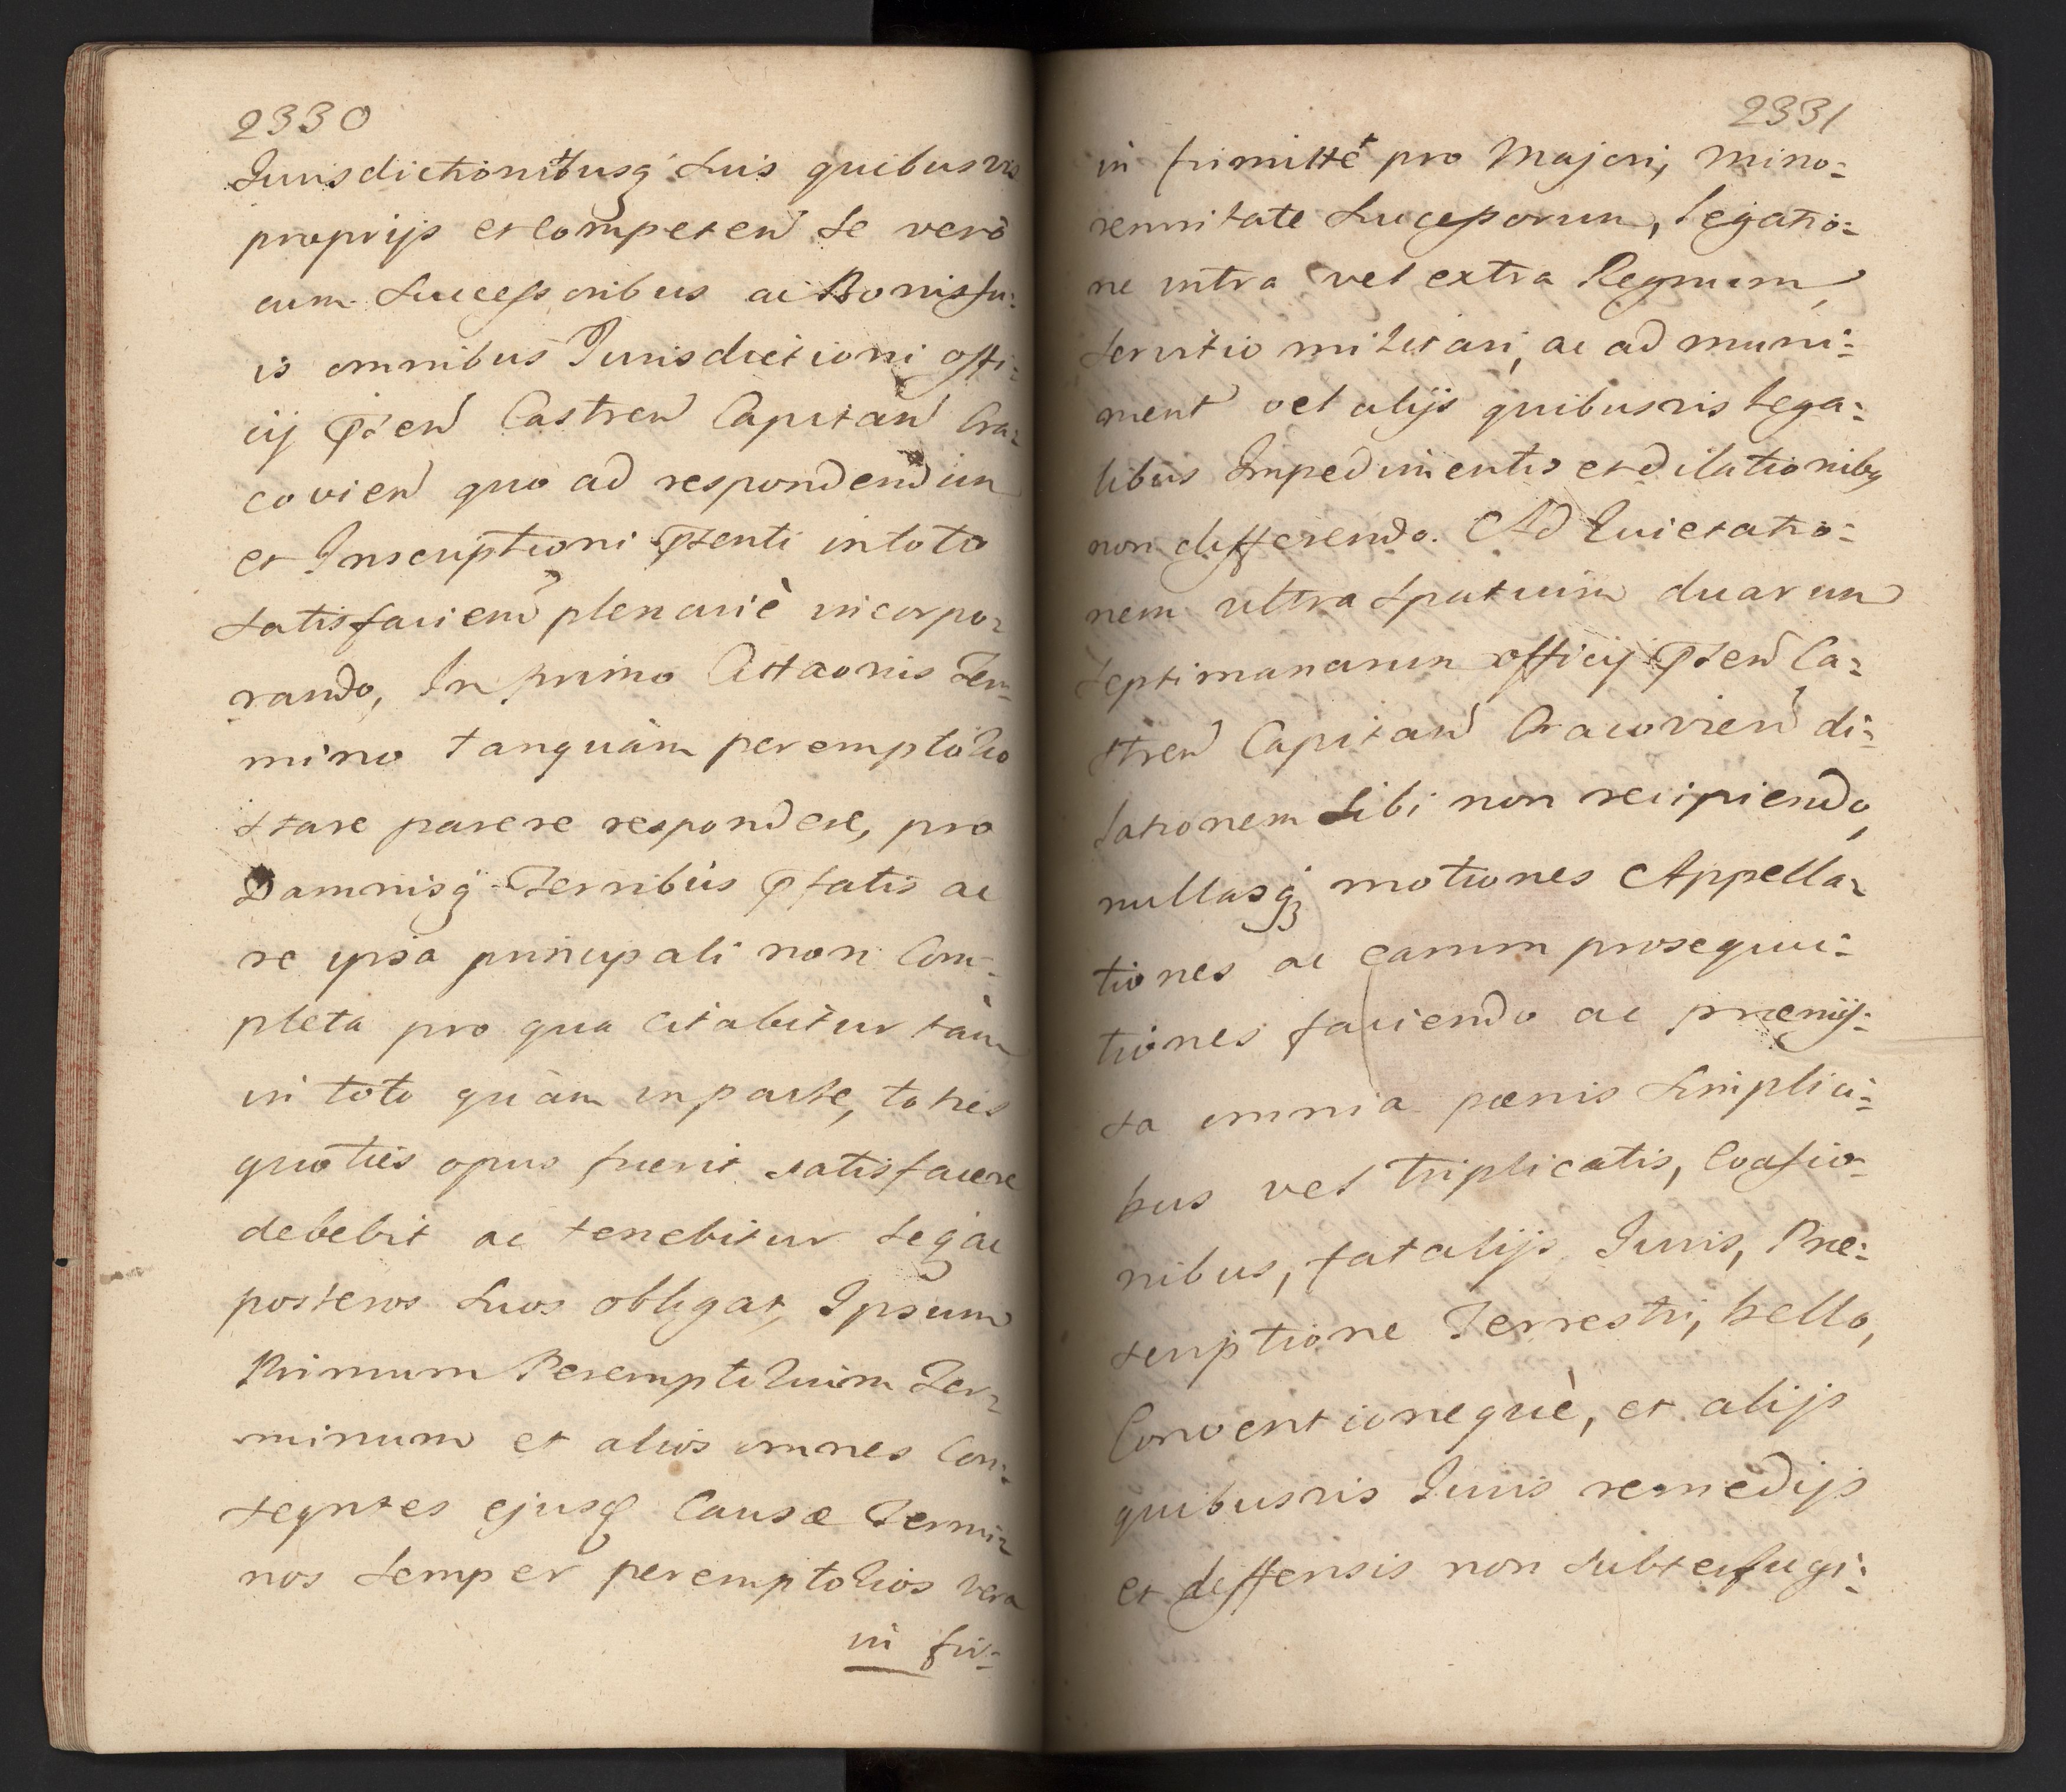 2330
Jurisdictionibusq suis quibusvis
proprijs et Competen se vero
cum Successoribus ac Bonis su:
is omnibus Jurisdictioni offi:
cij pnten Castren Capitan Cra:
covien quo ad respondendum
et Inscriptioni pnti in toto
satisfaciend plenarie incorpo:
rando, In primo Citta͠onis Ter:
mino tanquàm peremptorio
stare parere respondere, pro
Damnisq Terribus pfatis ac
re ipsa principali non Com:
pleta pro qua citabitur tàm
in toto quàm in parte, toties
quoties opus fuerit satisfacere
debebit ac tenebitur seq ac
posteros suos obligat, Ipsum
Primum Peremptorium Ter:
minum et alios omnes Con:
seqntes ejusq Causæ Termi:
nos semper peremptorios vera
in fir:
2331
in firmitte pro Majori, mino:
rennitate Successorum, legatio:
ne intra vel extra Regnum,
servitio militari, ac ad muni:
ment vel alijs quibusvis lega:
libus Impedimentis et dilationibq
non differendo. Ad Quietatio:
nem ultra spatium duarum
septimanarum officij pnten Ca:
stren Capitan Cracovien di:
lationem sibi non recipiendo,
nullasq motiones Appella:
tiones ac earum prosequu:
tiones faciendo ac præmis:
sa omnia pænis simplici:
bus vel triplicatis, Coa͠tio:
nibus, fatalijs Juris, Præ:
scriptione Terrestri, bello,
Conventionequè, et alijs
quibusvis Juris remedijs
et deffensis non subterfugi: